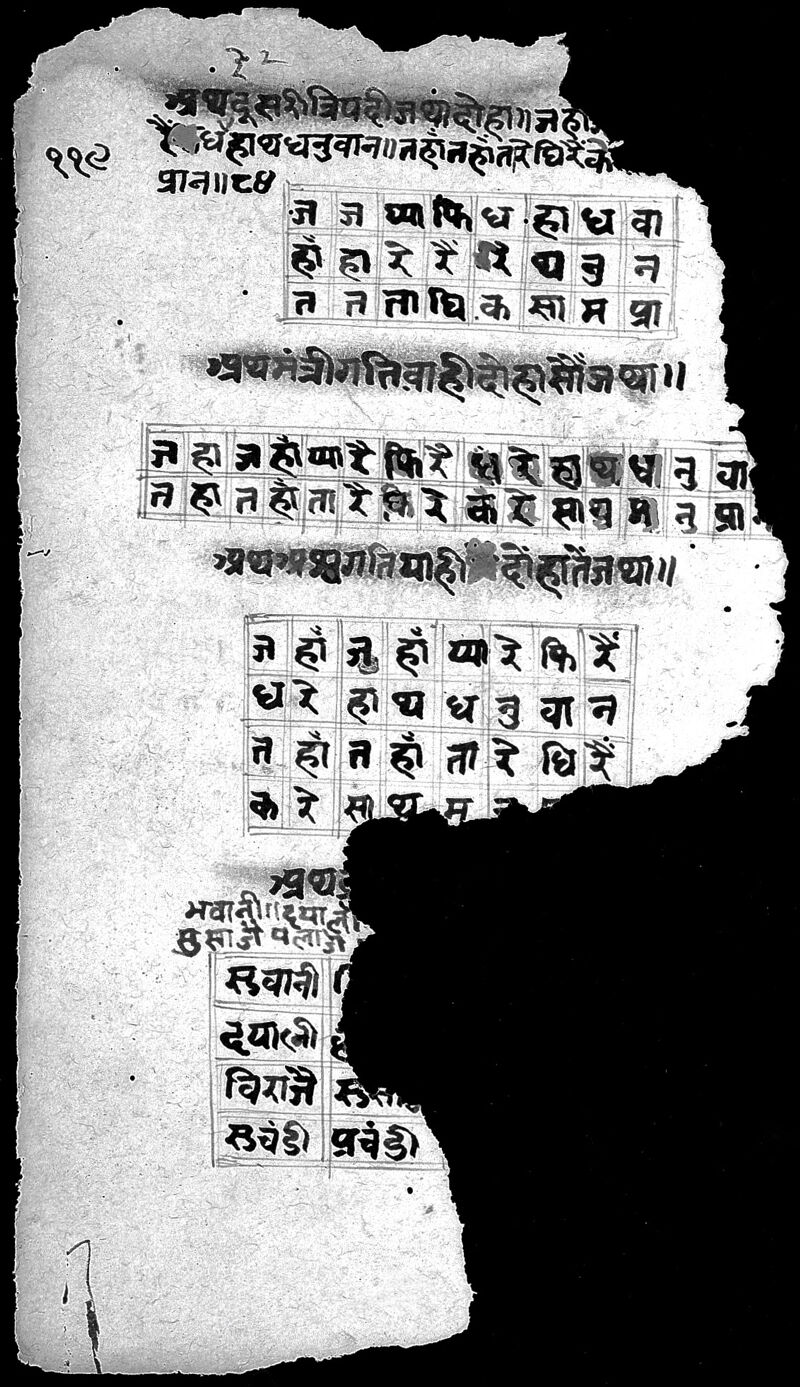 ३२
अथ दूसरी त्रिपदी जथा दोहा ॥ जहाँ
११९
रैं धरें हाथ धनुवान ॥ तहाँ तहाँ तारे घिरैं के
प्रान ॥ ८४
ज ज प्या फि ध हा ध वा
हाँ हा रे रैं रै थ नु न
त त ता घि क सा म प्रा
अथ मंत्रीगति वाही दोहा सौं जथा ॥
ज हा ज हाँ प्या रै फि रै ध रे हा थ ध नु वा
त हा त हाँ ता रै फि रे क रे सा थ म नु प्रा
अथ अश्वगति याही दोहा तें जथा ॥
ज हाँ ज हाँ प्या रे फि रैं
ध रे हा थ ध नु वा न
त हाँ त हाँ ता रे घि रैं
क रे सा थ म
अथ
भवानी ॥ दयाली
सुसाजै पलाजै
सुवानी
दयाली
विराजै
सुचंडी प्रचंडी